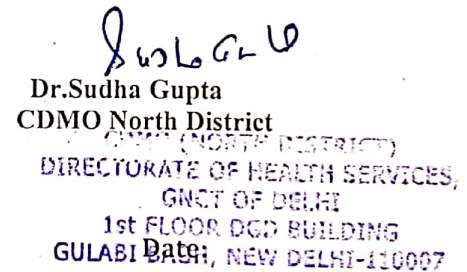 Dr.Sudha Gupta
CDMO North District
CDMO (NORTH DISTRICT)
DIRECTORATE OF HEALTH SERVICES,
GNCT OF DELHI
1st FLOOR DGD BUILDING
GULABI BAGH, NEW DELHI-110007
Date: